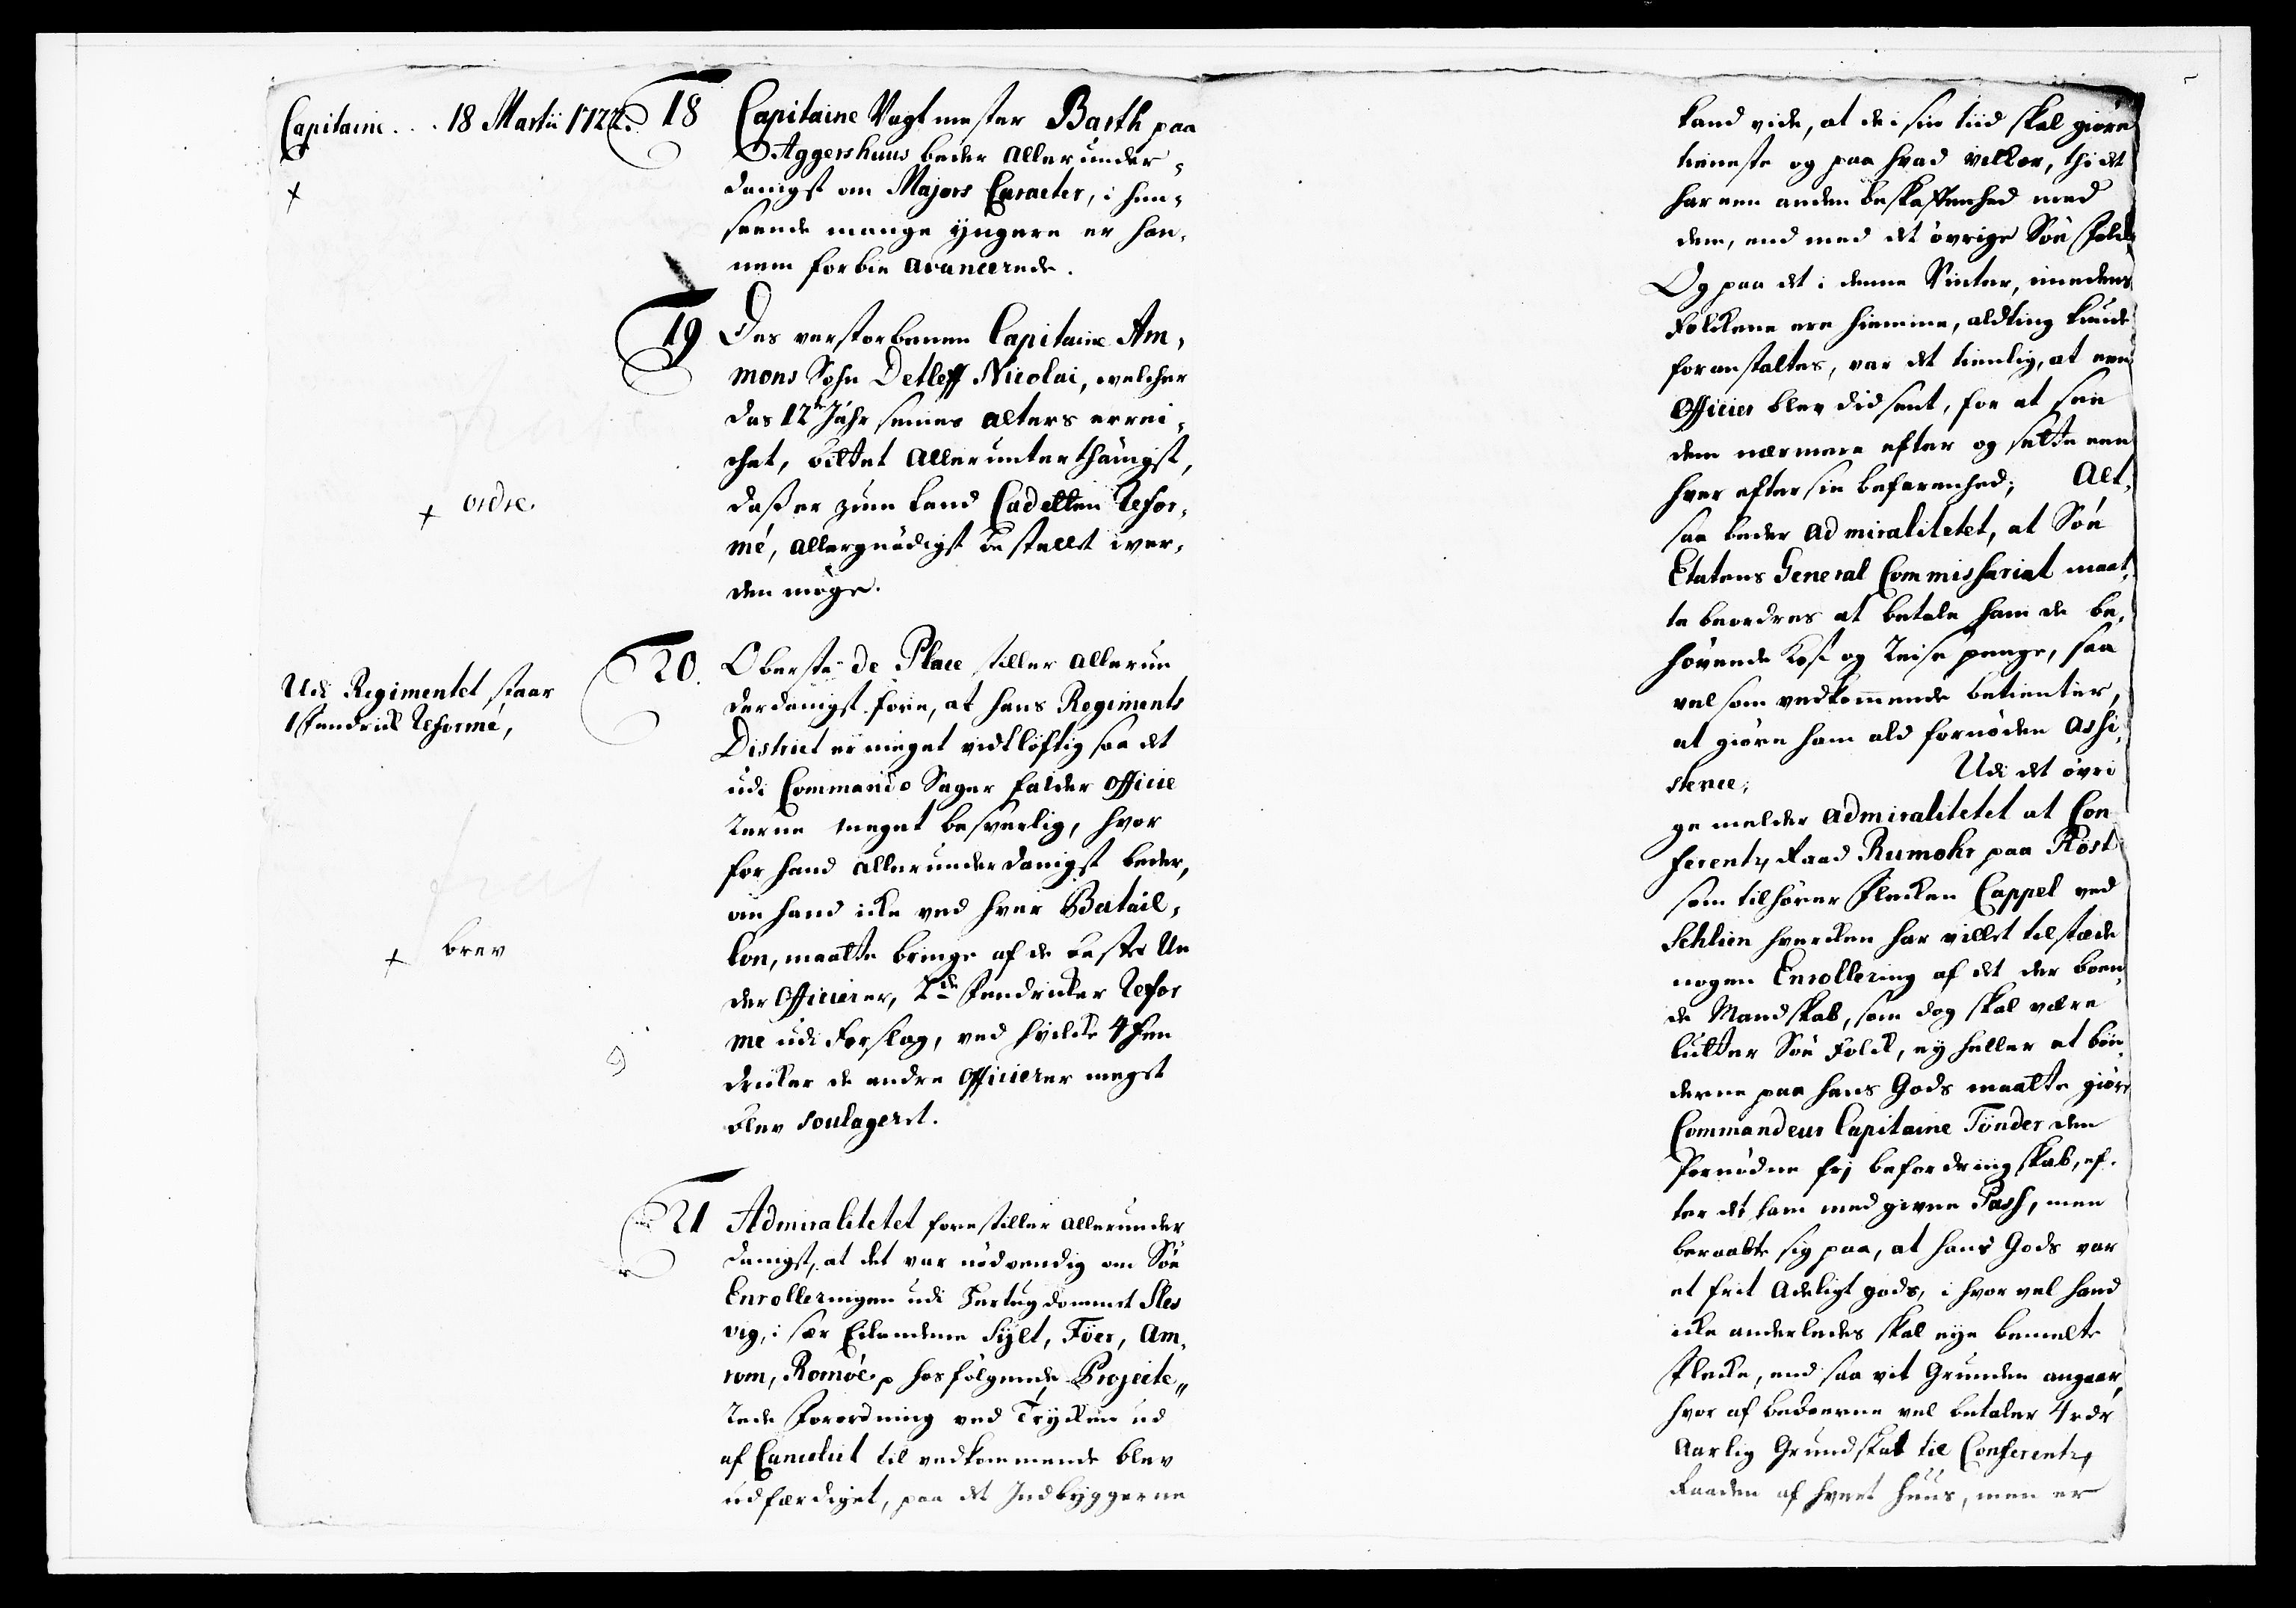 Capitaine . . . 18 Martii 1722.
+
18
Capitaine Vagtmester Barth paa
Aggershuus beder allerunder-
danigst om Majors Caracter, i hen-
seende mange yngere er han-
nem forbie avancerede.
19
Des verstorbenen Capitaine Am-
mons Sohn Detleff Nicolai, welcher
das 12te Jahr seines alters errei-
chet, bittet allerunterthänigst,
+ ordre.
daß er zum Land Cadetten Refor-
mé, allergnädigst bestellet wer-
den möge.
20.
Oberste de Place stiller allerun
Udi Regimentet staar
1 Fendrick Reformé,
derdanigst fore, at hans Regiments
District er meget vidtløftig saa det
udi Commando Sager falder officie
rerne meget besværlig, hvor
for hand allerunderdanigst beder,
om hand icke ved hver Batail-
+ brev
lon, maatte bringe af de beste Un
der Officierer, 2de Fendricker Refor
me udi Forslag, ved hvilcke 4 Fen
dricker de andre Officierer meget
blev soulageret.
21
Admiralitetet forestiller allerunder
danigst, at det var nødvendig om Søe
Enrolleringen udi Hertugdommet Sles
vig, i sær Eilandene Sylt, Föer, Am-
rom, Romöe p hosfølgende Projecte-
rede Forordning ved Trycken ud
af Canceliet til vedkommende blev
udfærdiget, paa det Indbyggerne
kand vide, at de i sin tiid skal giøre
tieneste og paa hvad vilkor, thi det
har een anden beskaffenhed med
dem, end med det øvrige Søe Folck
Og paa det i denne Vinter, imedens
Folckene ere hiemme, alting kunde
foranstaltes, var det tienlig, at een
Officier blev did sent, for at see
dem nærmere efter og sette een
hver efter sin befarenhed; Alt-
saa beder Admiralitetet, at Søe
Etatens General Commissariat maat-
te beordres at betale ham de be-
høvende Kost og Reise penge, saa
vel som vedkommende betienter,
at giøre ham ald fornøden assi-
stence; Udi det øvri
ge melder Admiralitetet at Con-
ferentz Raad Rumohr paa Röst
som tilhører Flecken Cappel ved
Schlien hvercken har villet tilstæde
nogen Enrollering af det der boen-
de Mandskab, som dog skal være
lutter Søe Folck, ey heller at bøn-
derne paa hans Gods maatte giøre
Commandeur Capitaine Tönder den
fornødne frj befordringskab, ef-
ter det ham med givne Pass, men
beraabte sig paa, at hans Gods var
et frit Adeligt gods, i hvorvel hand
icke anderledes skal eye bemelte
Flecke, end saa vit Grunden angaar,
hvor af beboerne vel betaler 4 rdr
Aarlig Grundskat til Conferentz
Raaden af hvert huus, men er